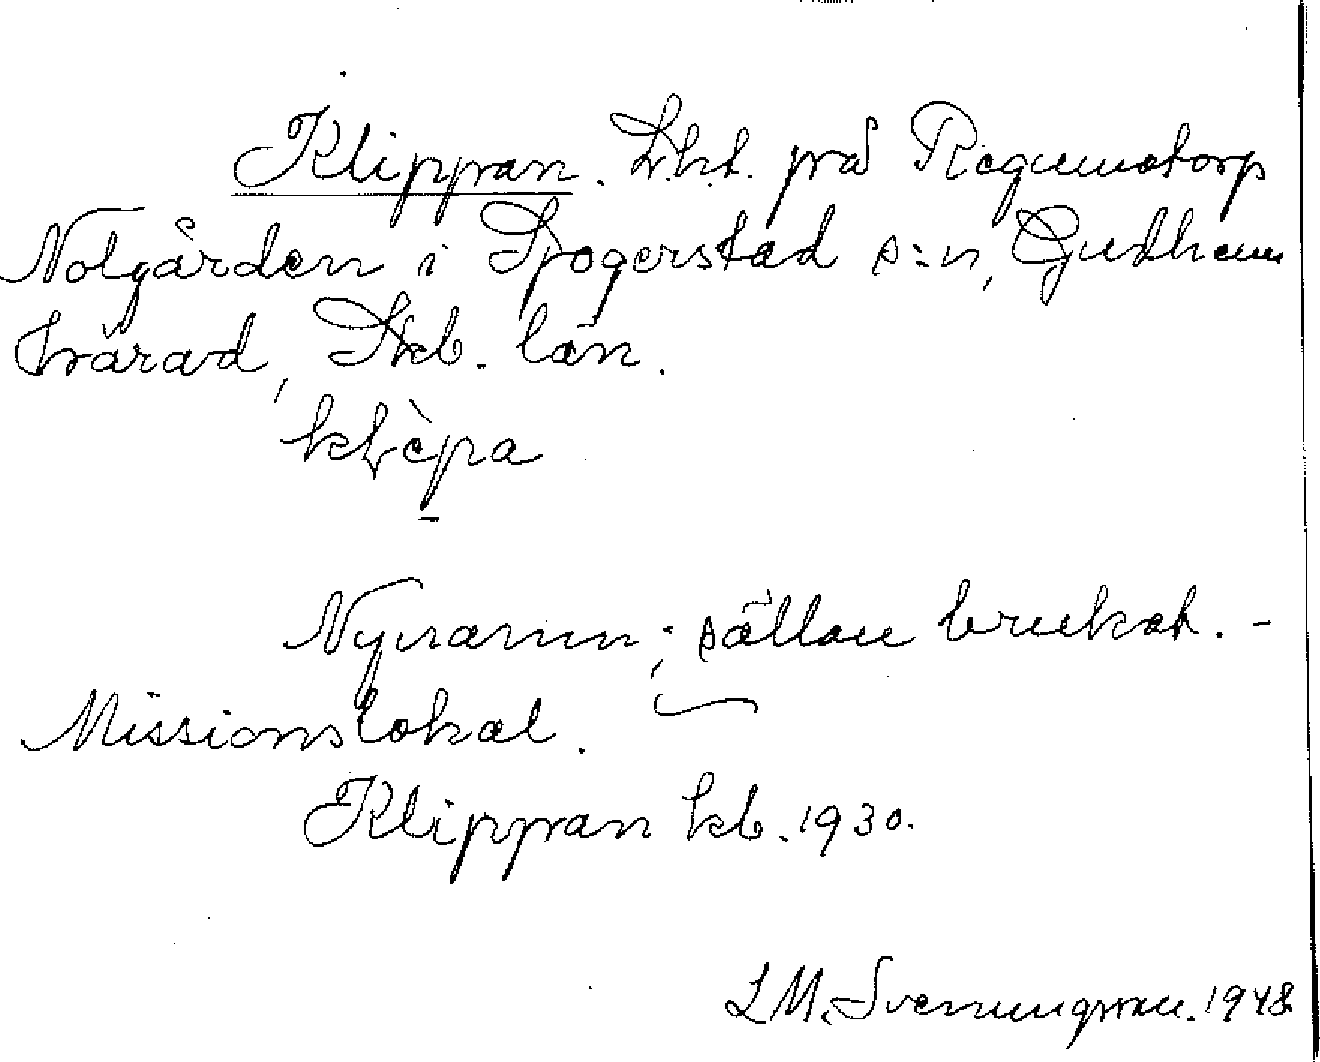 Klippran. Lht. på Regumatorp
Nolgården i Spogerstad s:n, Gudhem
härad, Skb. län.
klèpa
Nynamn; sällan brukat. -
Missionslokal.
Klippran kb. 1930.
L M. Svenungsson. 1948